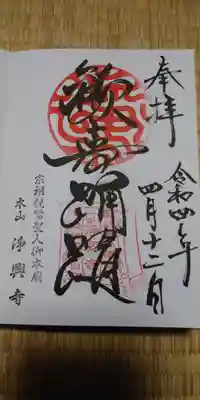 奉拝
令和四年
四月十二日
歓喜踊躍
宗祖親鸞聖人御本廟
本山 浄興寺